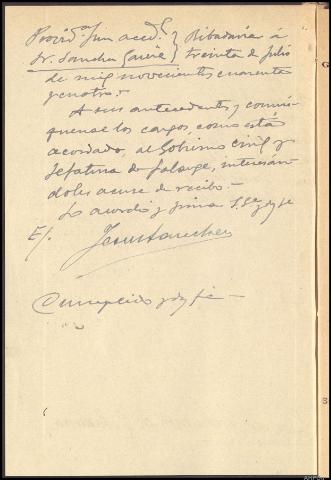 Providª Juez accdl. } Ribadavia a
Sr. Sanchez García } treinta de Julio
de mil novecientos cuarenta
y cuatro.-
A sus antecedentes y comuni-
quense los cargos, como está
acordado, al Gobierno civil y
Jefatura de Falange, interesán
doles acuse de recibo.-
Lo acordó y firma S.Sª y doy fe
E/. Jesus Sanchez
Cumplido y doy fe -